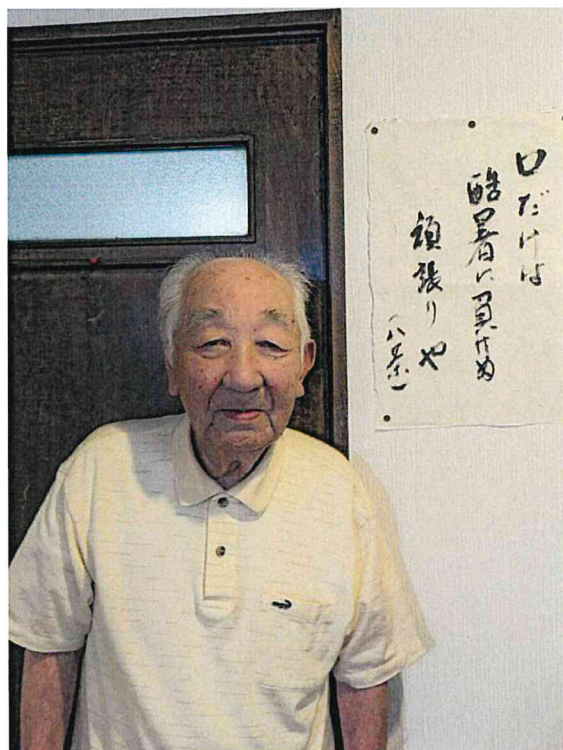 口だけは
酷暑に負けぬ
頑張りや